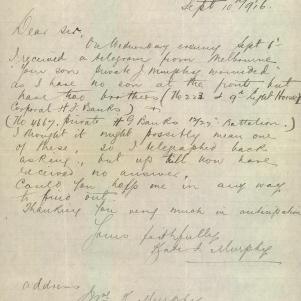 Sept 10th 1916.
Dear Sir,
On Wednesday evening Sept 6th
I received a telegram from Melbourne
"Your son Private J Murphy wounded"
as I have no son at the front but
have two brothers (No 223 9th Light Horse
Corporal H. J. Banks)
(No 4667. Private H G Banks Battalion.)
I thought it might possibly mean one
of these, so I telegraphed back
asking, but up till now have
received no answer,
Could you help me in any way
to find out
Thanking You very much in anticipation
Yours faithfully
Kate I Murphy
address
Murphy